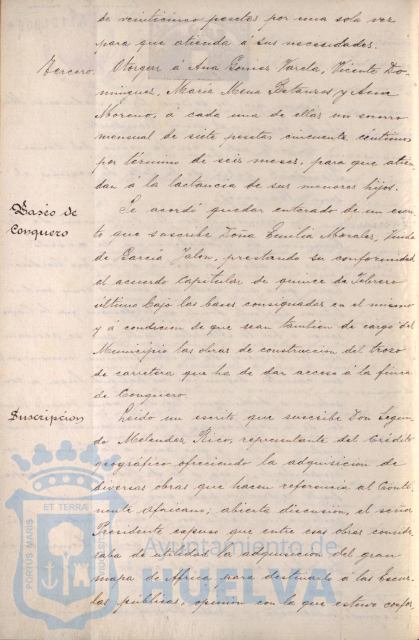 de veinticinco pesetas por una sola vez
para que atienda á sus necesidades.
Tercero. Otorgar á Ana Gomez Varela, Vicente Do-
minguez, María Mena Betanzos y Ana
Moreno, á cada una de ellas un socorro
mensual de siete pesetas cincuenta céntimos
por término de seis meses, para que atien-
dan á la lactancia de sus menores hijos.
Paseo de
Conquero
Se acordó quedar enterado de un escri-
to que suscribe Doña Emilia Morales, Viuda
de Garcia Jalon, prestando su conformidad
al acuerdo Capitular de quince de Febrero
último bajo las bases consignadas en el mismo
y á condicion de que sean tambien de cargo del
Municipio las obras de construccion del trozo
de carretera que ha de dar acceso á la finca
de Conquero.
Suscripcion
Leido un escrito que suscribe Don Segun-
do Melendez Rico, representante del Crédito
geográfico ofreciendo la adquisicion de
diversas obras que hacen referencia al Conti-
nente Africano; abierta discusion, el señor
Presidente expuso que entre esas obras conside-
raba de utilidad la adquisicion del gran
mapa de Africa para destinarlo á las Escue-
las públicas, opinion con la que estuvo confor
PORTUS MARIS
ET TERRÆ
CUSTODIA
Ayuntamiento de
HUELVA